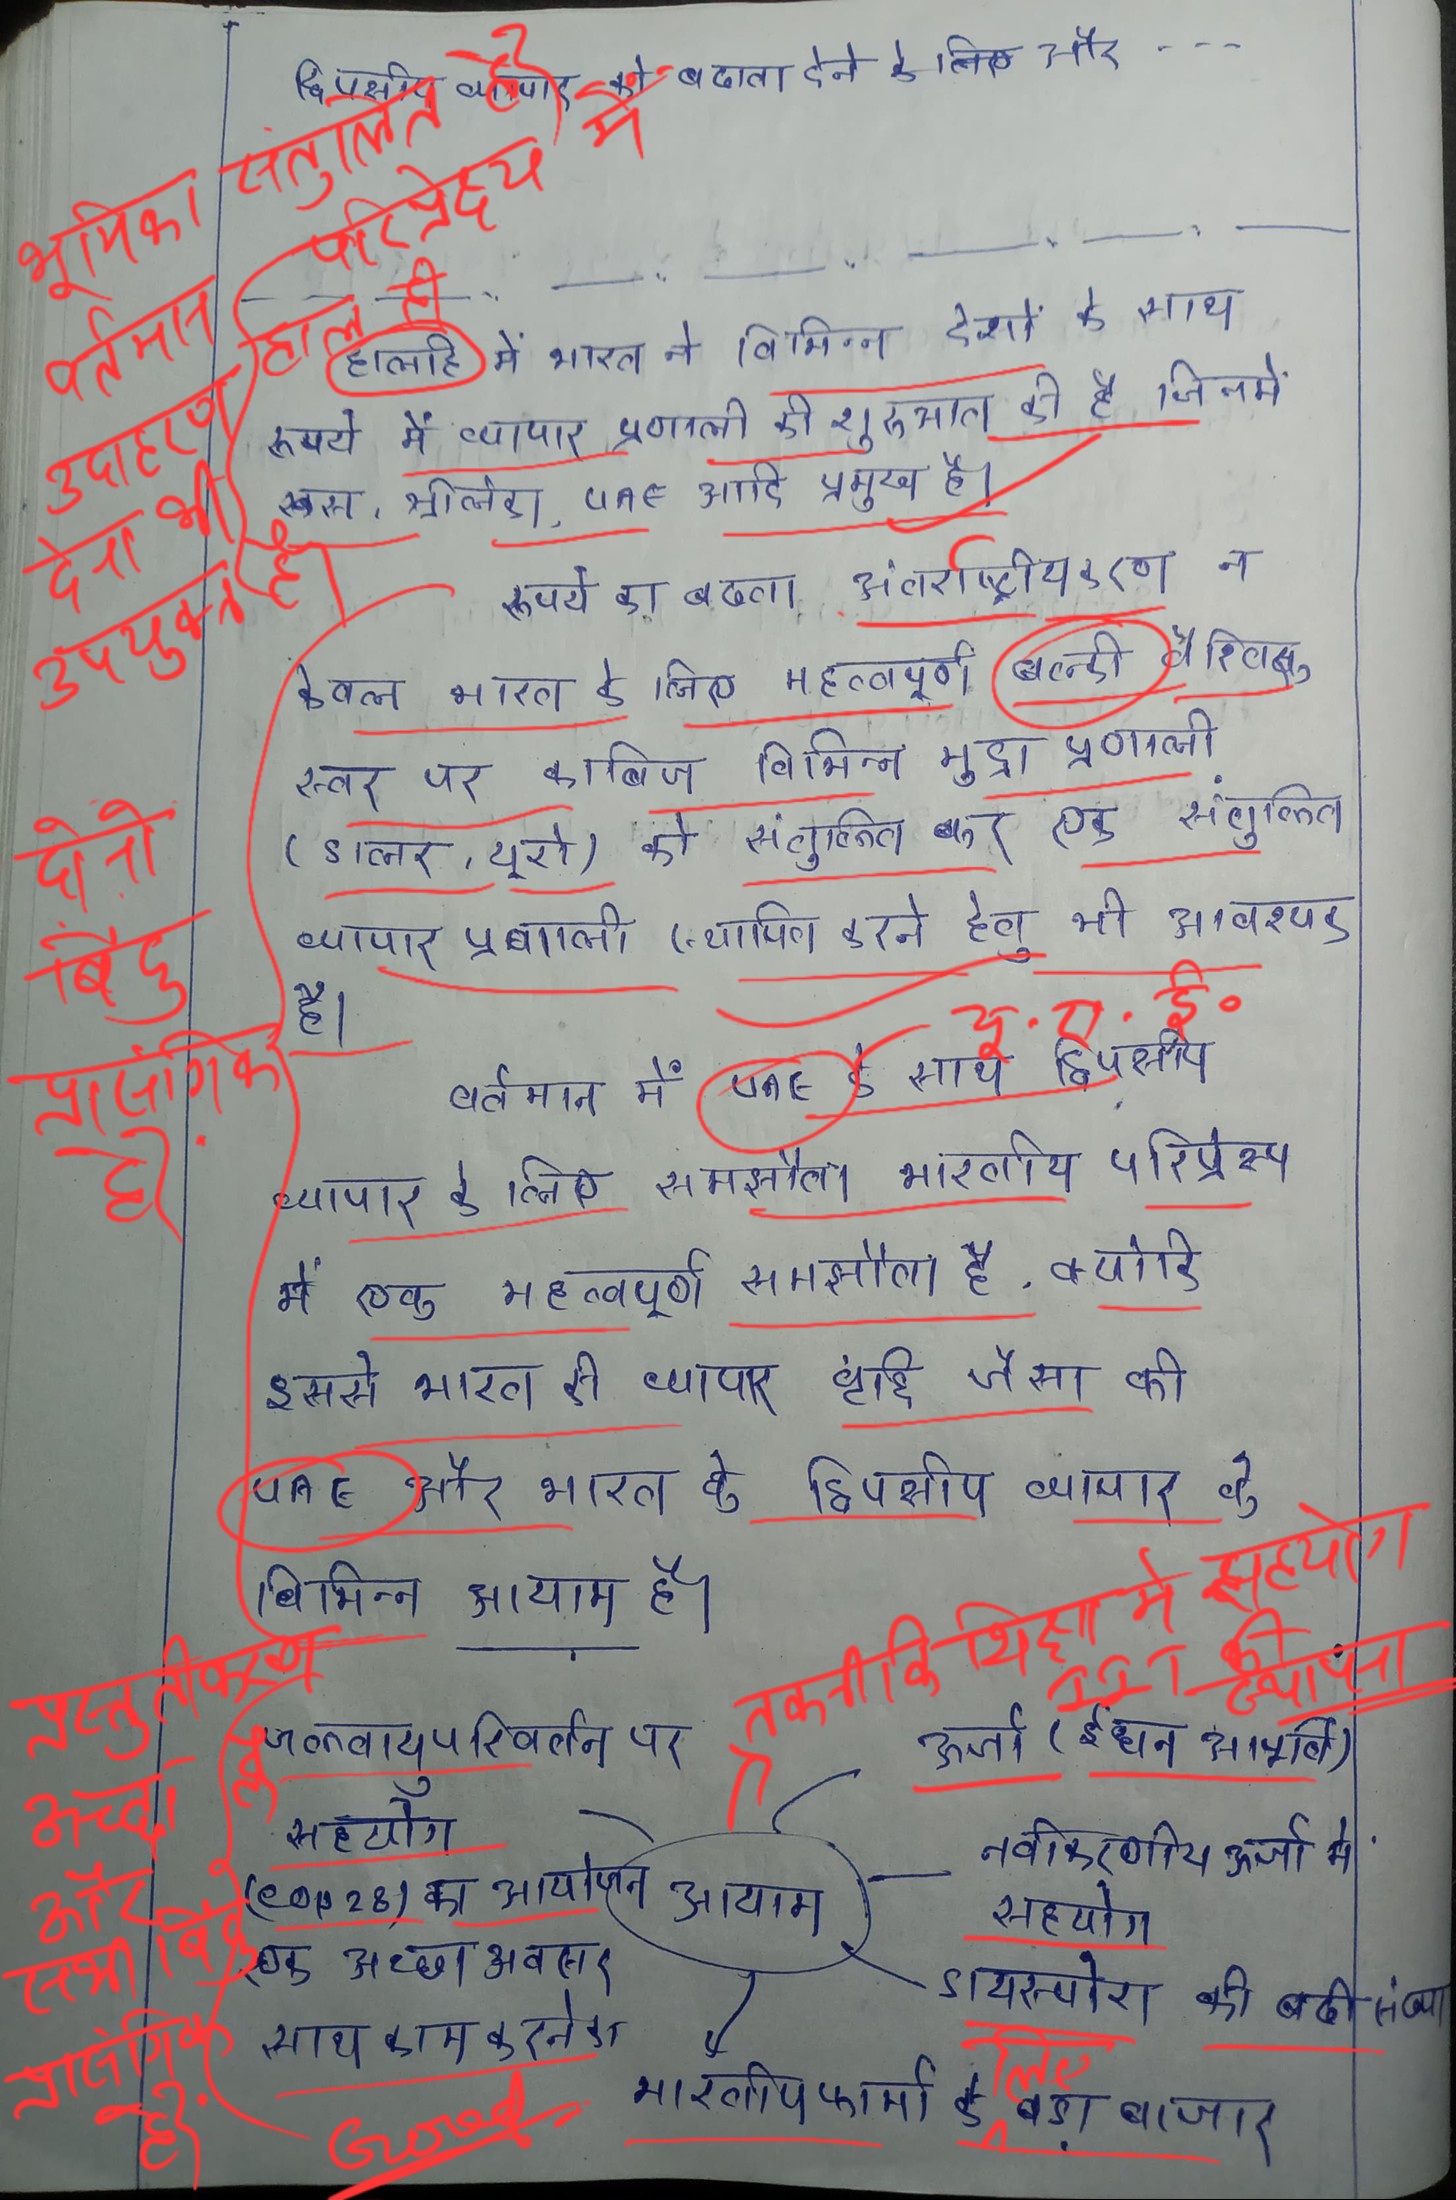 द्विपक्षीय व्यापार को बढावा देने के लिए और ---
भूमिका संतुलित है?
वर्तमान परिप्रेक्ष्य में
उदाहरण
देना भी
उपयुक्त है।
हाल ही
हालहि में भारत ने विभिन्न देशों के साथ
रूपये में व्यापार प्रणाली की शुरुआत की है जिनमें
रूस, श्रीलंका, UAE आदि प्रमुख है।
रूपये का बढता अंतर्राष्ट्रीयकरण न
केवल भारत के लिए महत्वपूर्ण बल्की वैश्विक
स्तर पर काबिज विभिन्न मुद्रा प्रणाली
(डालर, यूरो) को संतुलित कर एक संतुलित
व्यापार प्रणाली स्थापित करने हेतु भी आवश्यक
है।
दोनो
बिंदु
प्रासंगिक
है।
यू.ए.ई.
वर्तमान में UAE के साथ द्विपक्षीय
व्यापार के लिए समझौता भारतीय परिप्रेक्ष्य
में एक महत्वपूर्ण समझौता है, क्योकि
इससे भारत की व्यापार वृद्दि जैसा की
UAE और भारत के द्विपक्षीय व्यापार के
विभिन्न आयाम है।
तकनीकि शिक्षा मे सहयोग
IIT की
स्थापना
प्रस्तुतीकरण
अच्छा
और
सभी बिंदु
प्रासंगिक
है।
जलवायु परिवर्तन पर
सहयोग
(COP 28) का आयोजन
एक अच्छा अवसर
साथ काम करने का
आयाम
ऊर्जा (ईधन आपूर्ति)
नवीकरणीय ऊर्जा मे
सहयोग
डायस्पोरा की बढी संख्या
लिए
भारतीय फार्मा के बडा बाजार
Good